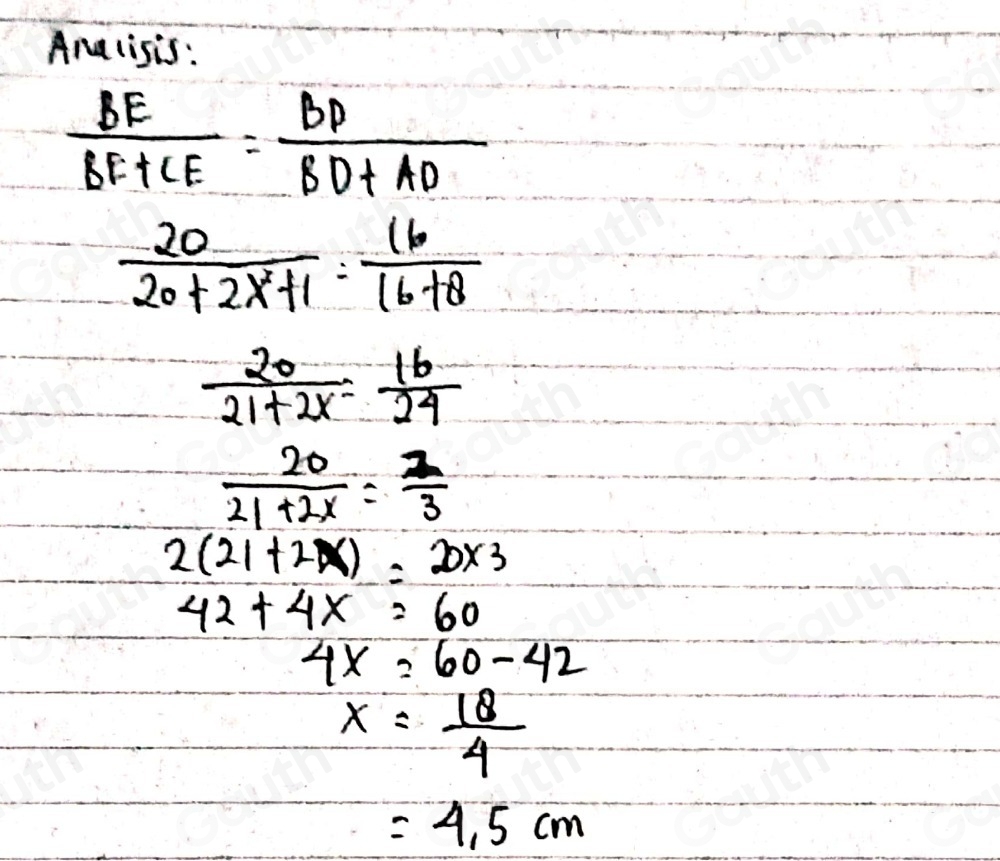 Analisis:
BE / BE+CE = BD / BD+AD
20 / 20+2x+1 = 16 / 16+8
20 / 21+2x = 16 / 24
20 / 21+2x = 2 / 3
2(21+2x) = 20x3
42+4x = 60
4x = 60-42
x = 18 / 4
= 4,5 cm